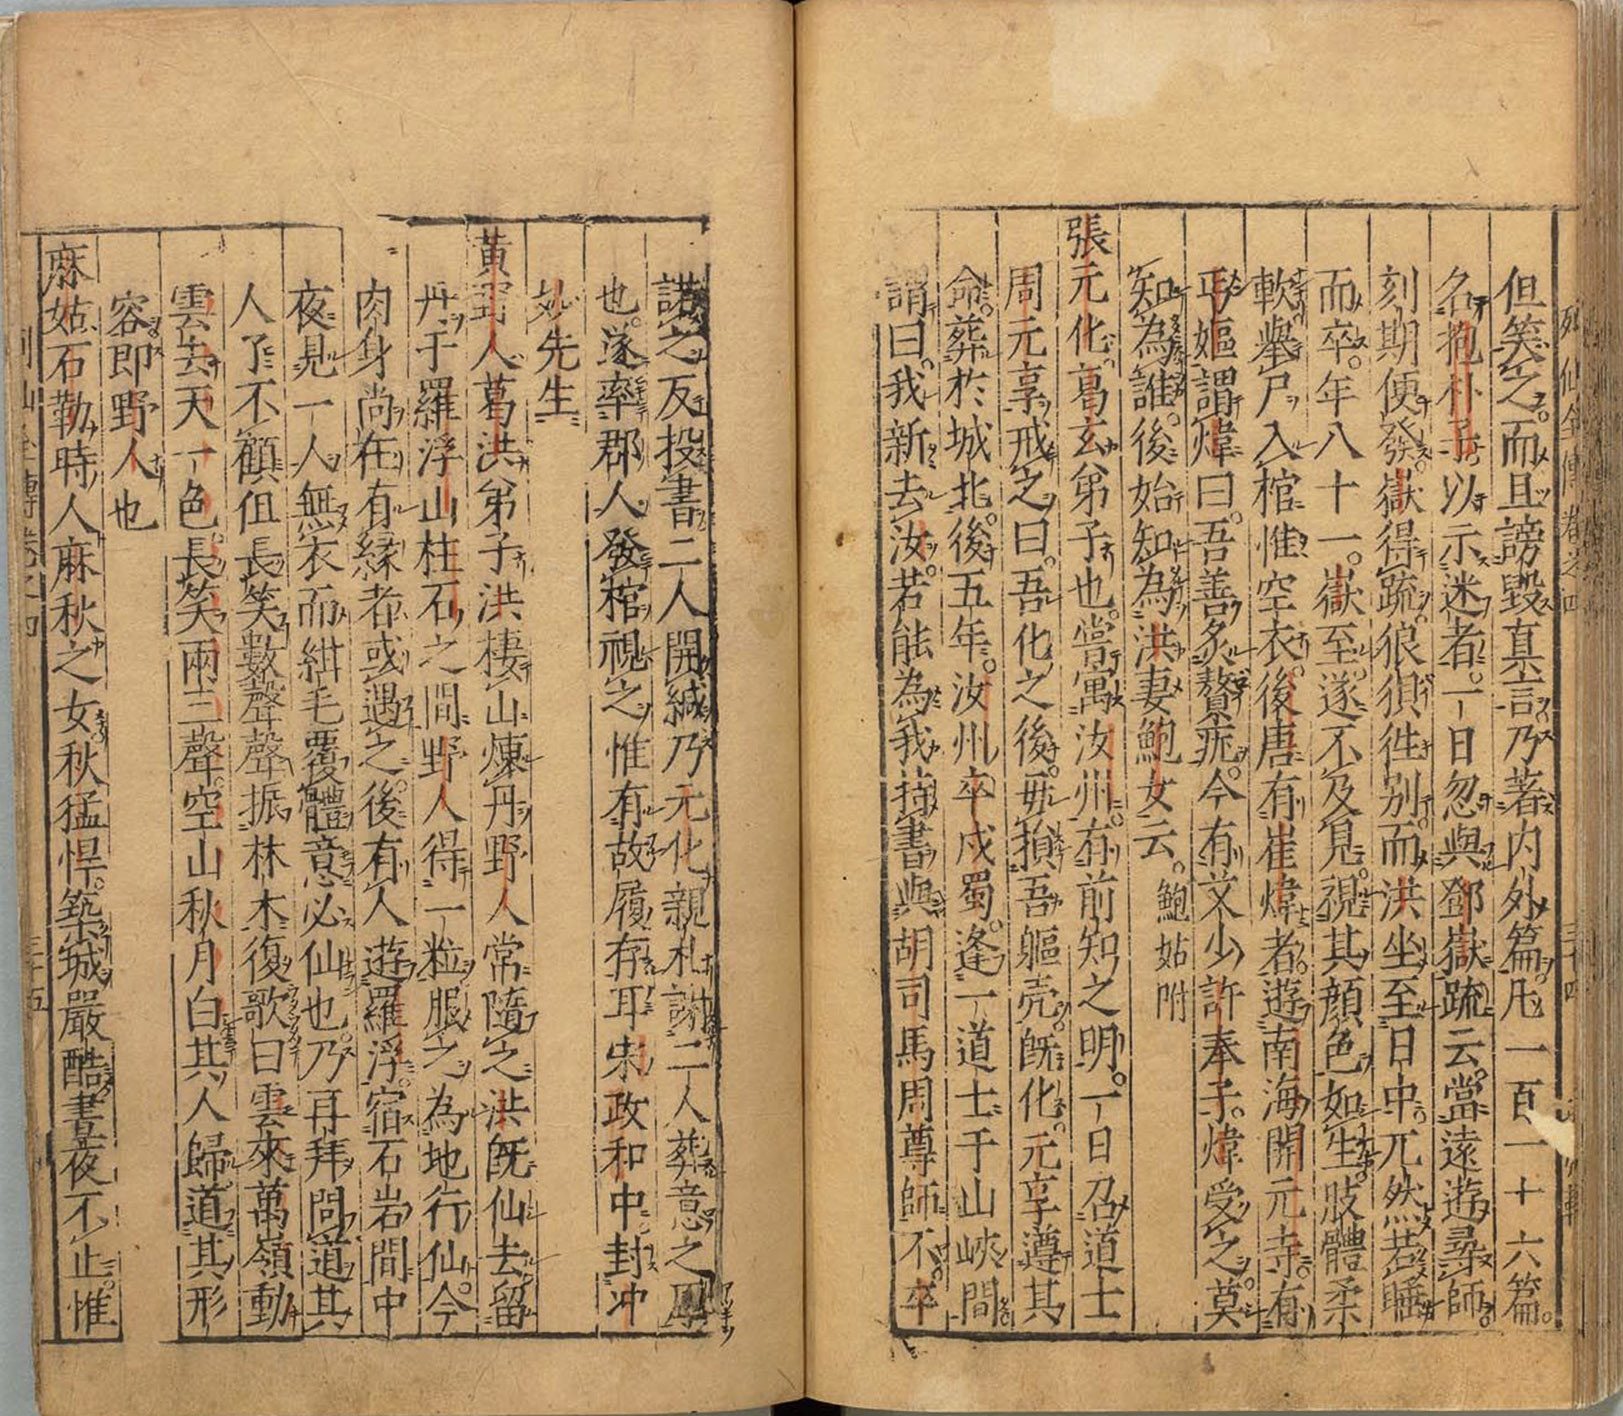 列仙全傳卷之四
但笑之而且謗毀真言乃著内外篇凡一百一十六篇
名抱朴子以示迷者一日忽與鄧嶽疏云當遠遊尋師
刻期便發嶽得疏狼狽徃別而洪坐至日中兀然若睡
而卒年八十一嶽至遂不及見視其顔色如生肢體柔
軟舉尸入棺惟空衣後唐有崔煒者遊南海開元寺有
丐嫗謂煒曰吾善炙贅疣今有艾少許奉子煒受之莫
知為誰後始知為洪妻鮑女云鮑姑附
張元化葛玄弟子也嘗寓汝州有前知之明一日召道士
周元享戒之曰吾化之後毋損吾軀壳既化元享遵其
命葬於城北後五年汝州卒戍蜀逢一道士于山峽間
謂曰我新去汝若能為我持書與胡司馬周尊師不卒
諾之反投書二人開緘乃元化親札謝二人葬意之厚
也遂率郡人發棺視之惟有故履存耳宋政和中封冲
妙先生
黄野人葛洪弟子洪棲山煉丹野人常隨之洪既仙去留
丹于羅浮山柱石之間野人得一粒服之為地行仙今
肉身尚在有縁者或遇之後有人遊羅浮宿石岩間中
夜見一人無衣而紺毛覆體意必仙也乃再拜問道其
人了不顧但長笑數聲聲振林木復歌曰雲來萬嶺動
雲去天一色長笑兩三聲空山秋月白其人歸道其形
容即野人也
麻姑石勒時人麻秋之女秋猛悍築城嚴酷晝夜不止惟